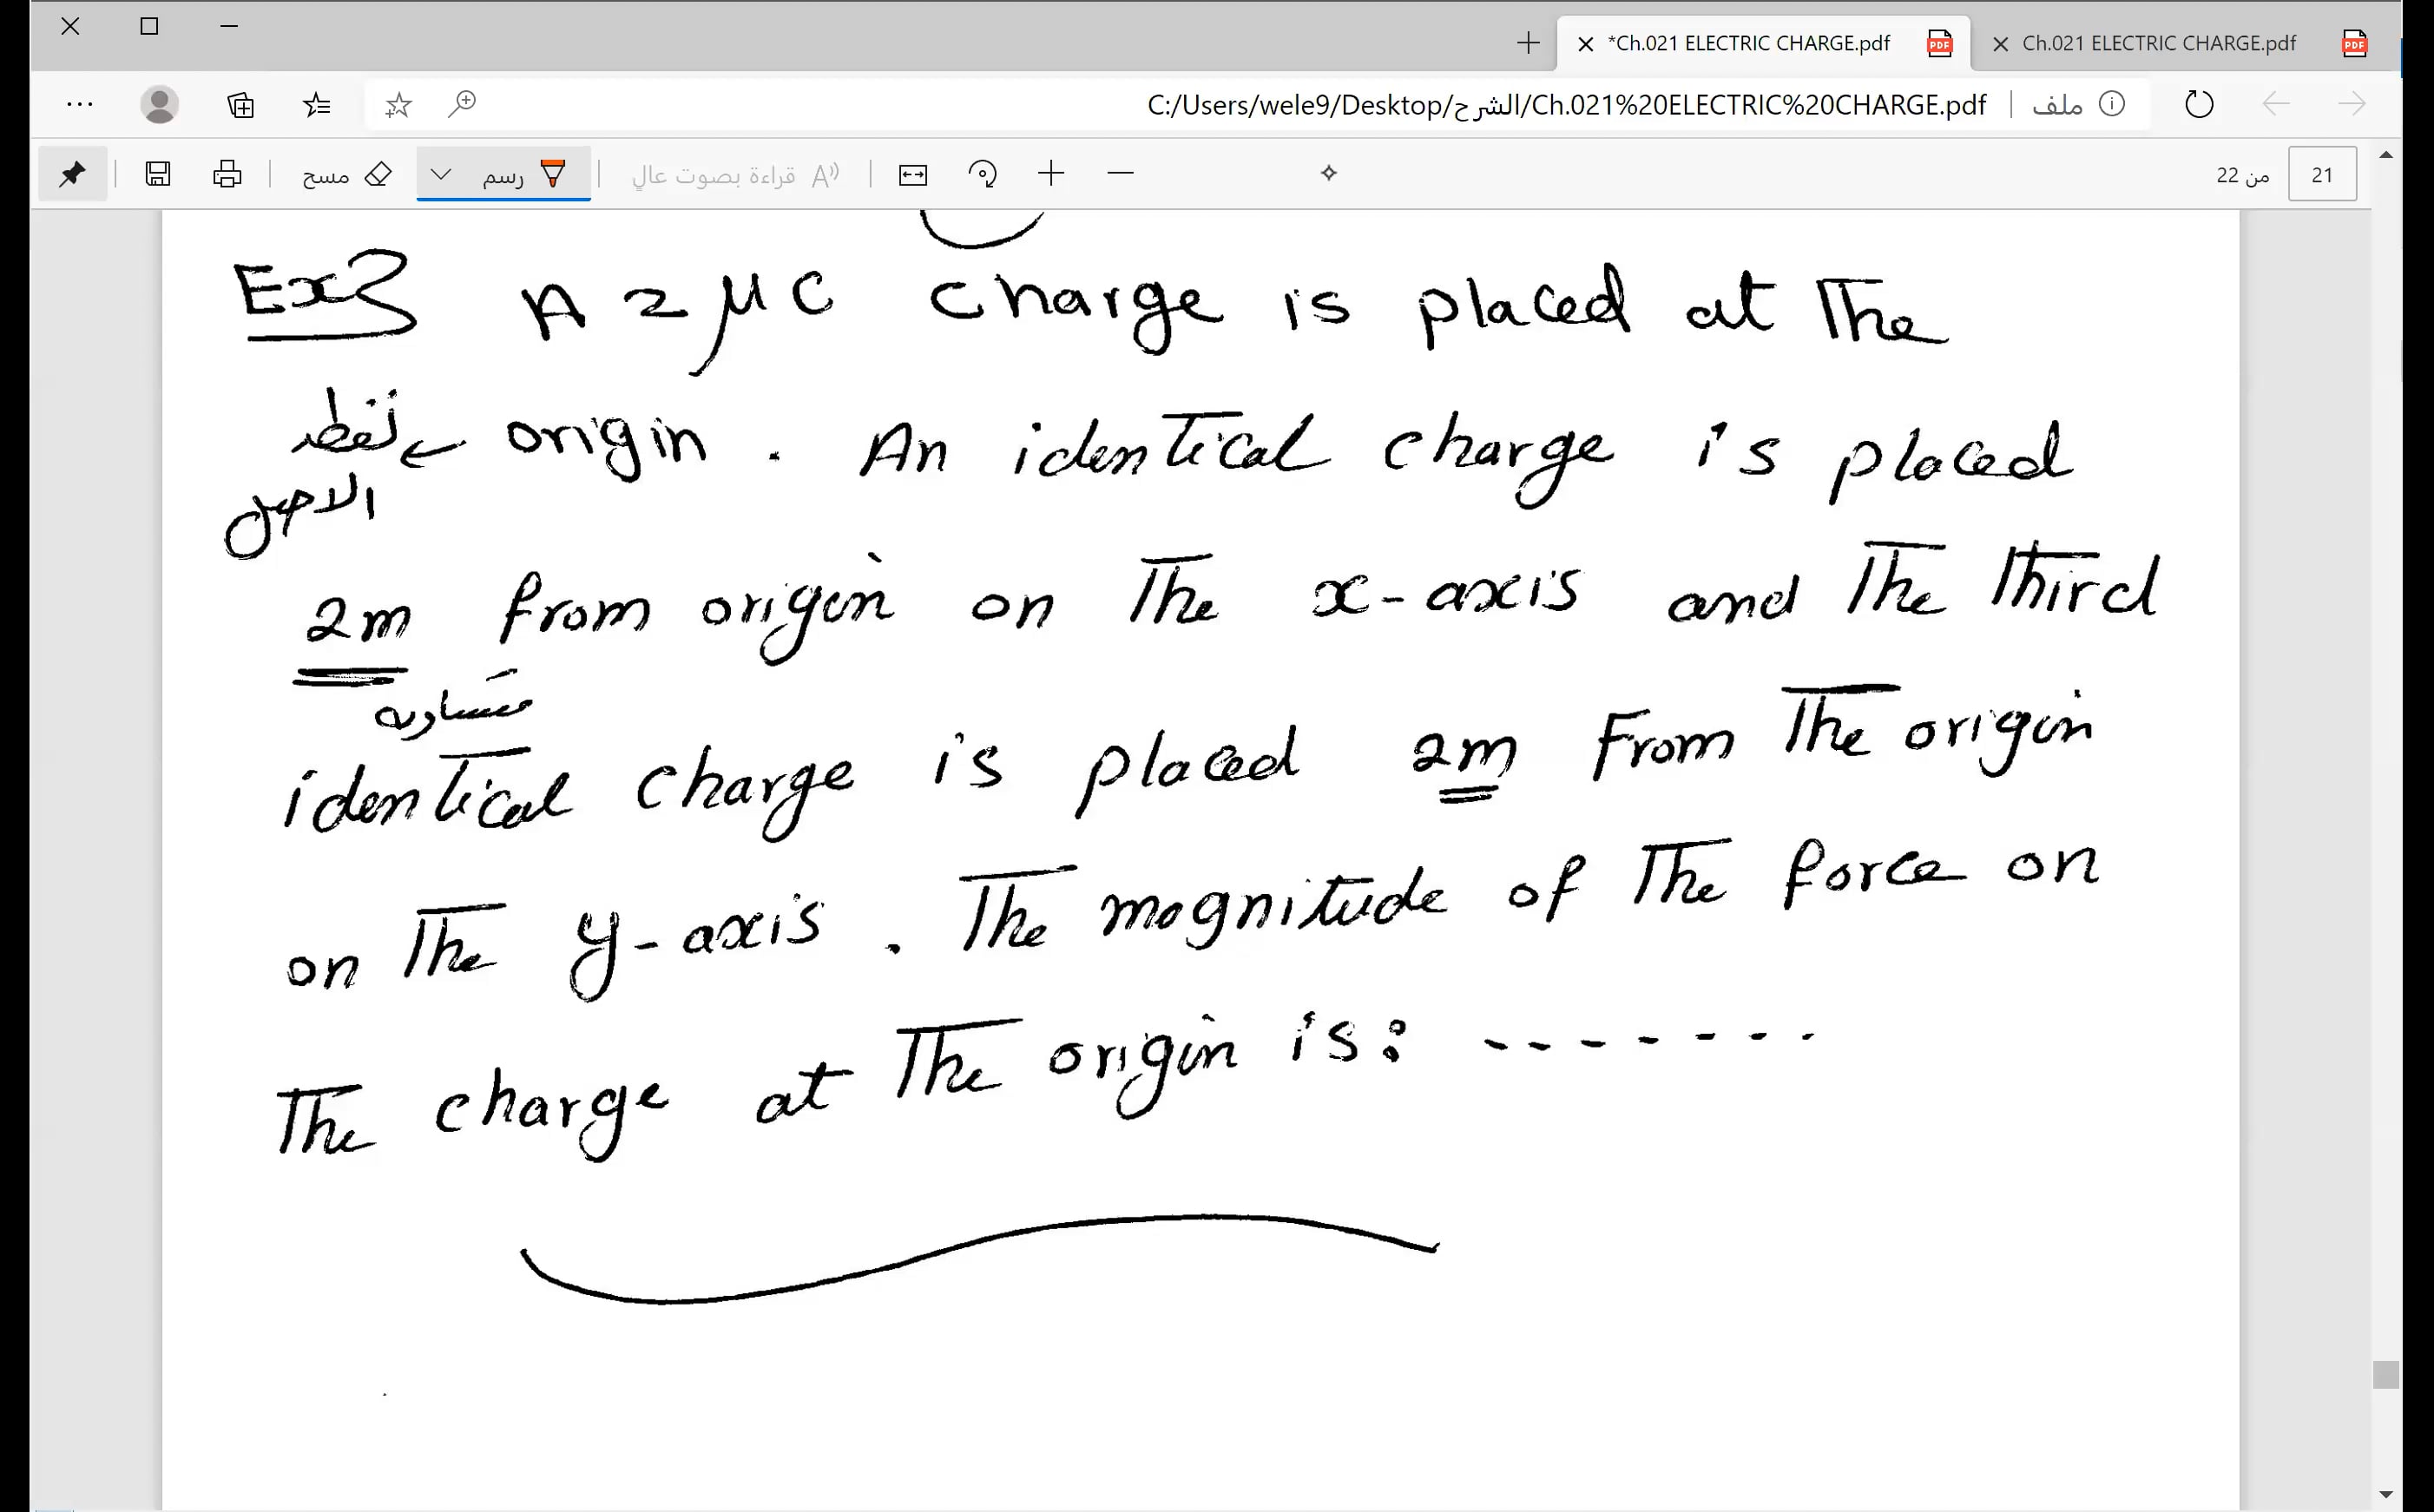 *Ch.021 ELECTRIC CHARGE.pdf
PDF
Ch.021 ELECTRIC CHARGE.pdf
PDF
C:/Users/wele9/Desktop/الشرح/Ch.021%20ELECTRIC%20CHARGE.pdf
ملف
مسح
رسم
قراءة بصوت عالٍ
من 22
21
Ex3 A 2 μC charge is placed at The
نقطة ← origin . An identical charge is placed
الاصل
2m from origin on The x-axis and The Third
متساوية
identical charge is placed 2m From The origin
on The y-axis . The magnitude of The force on
The charge at The origin is: -------